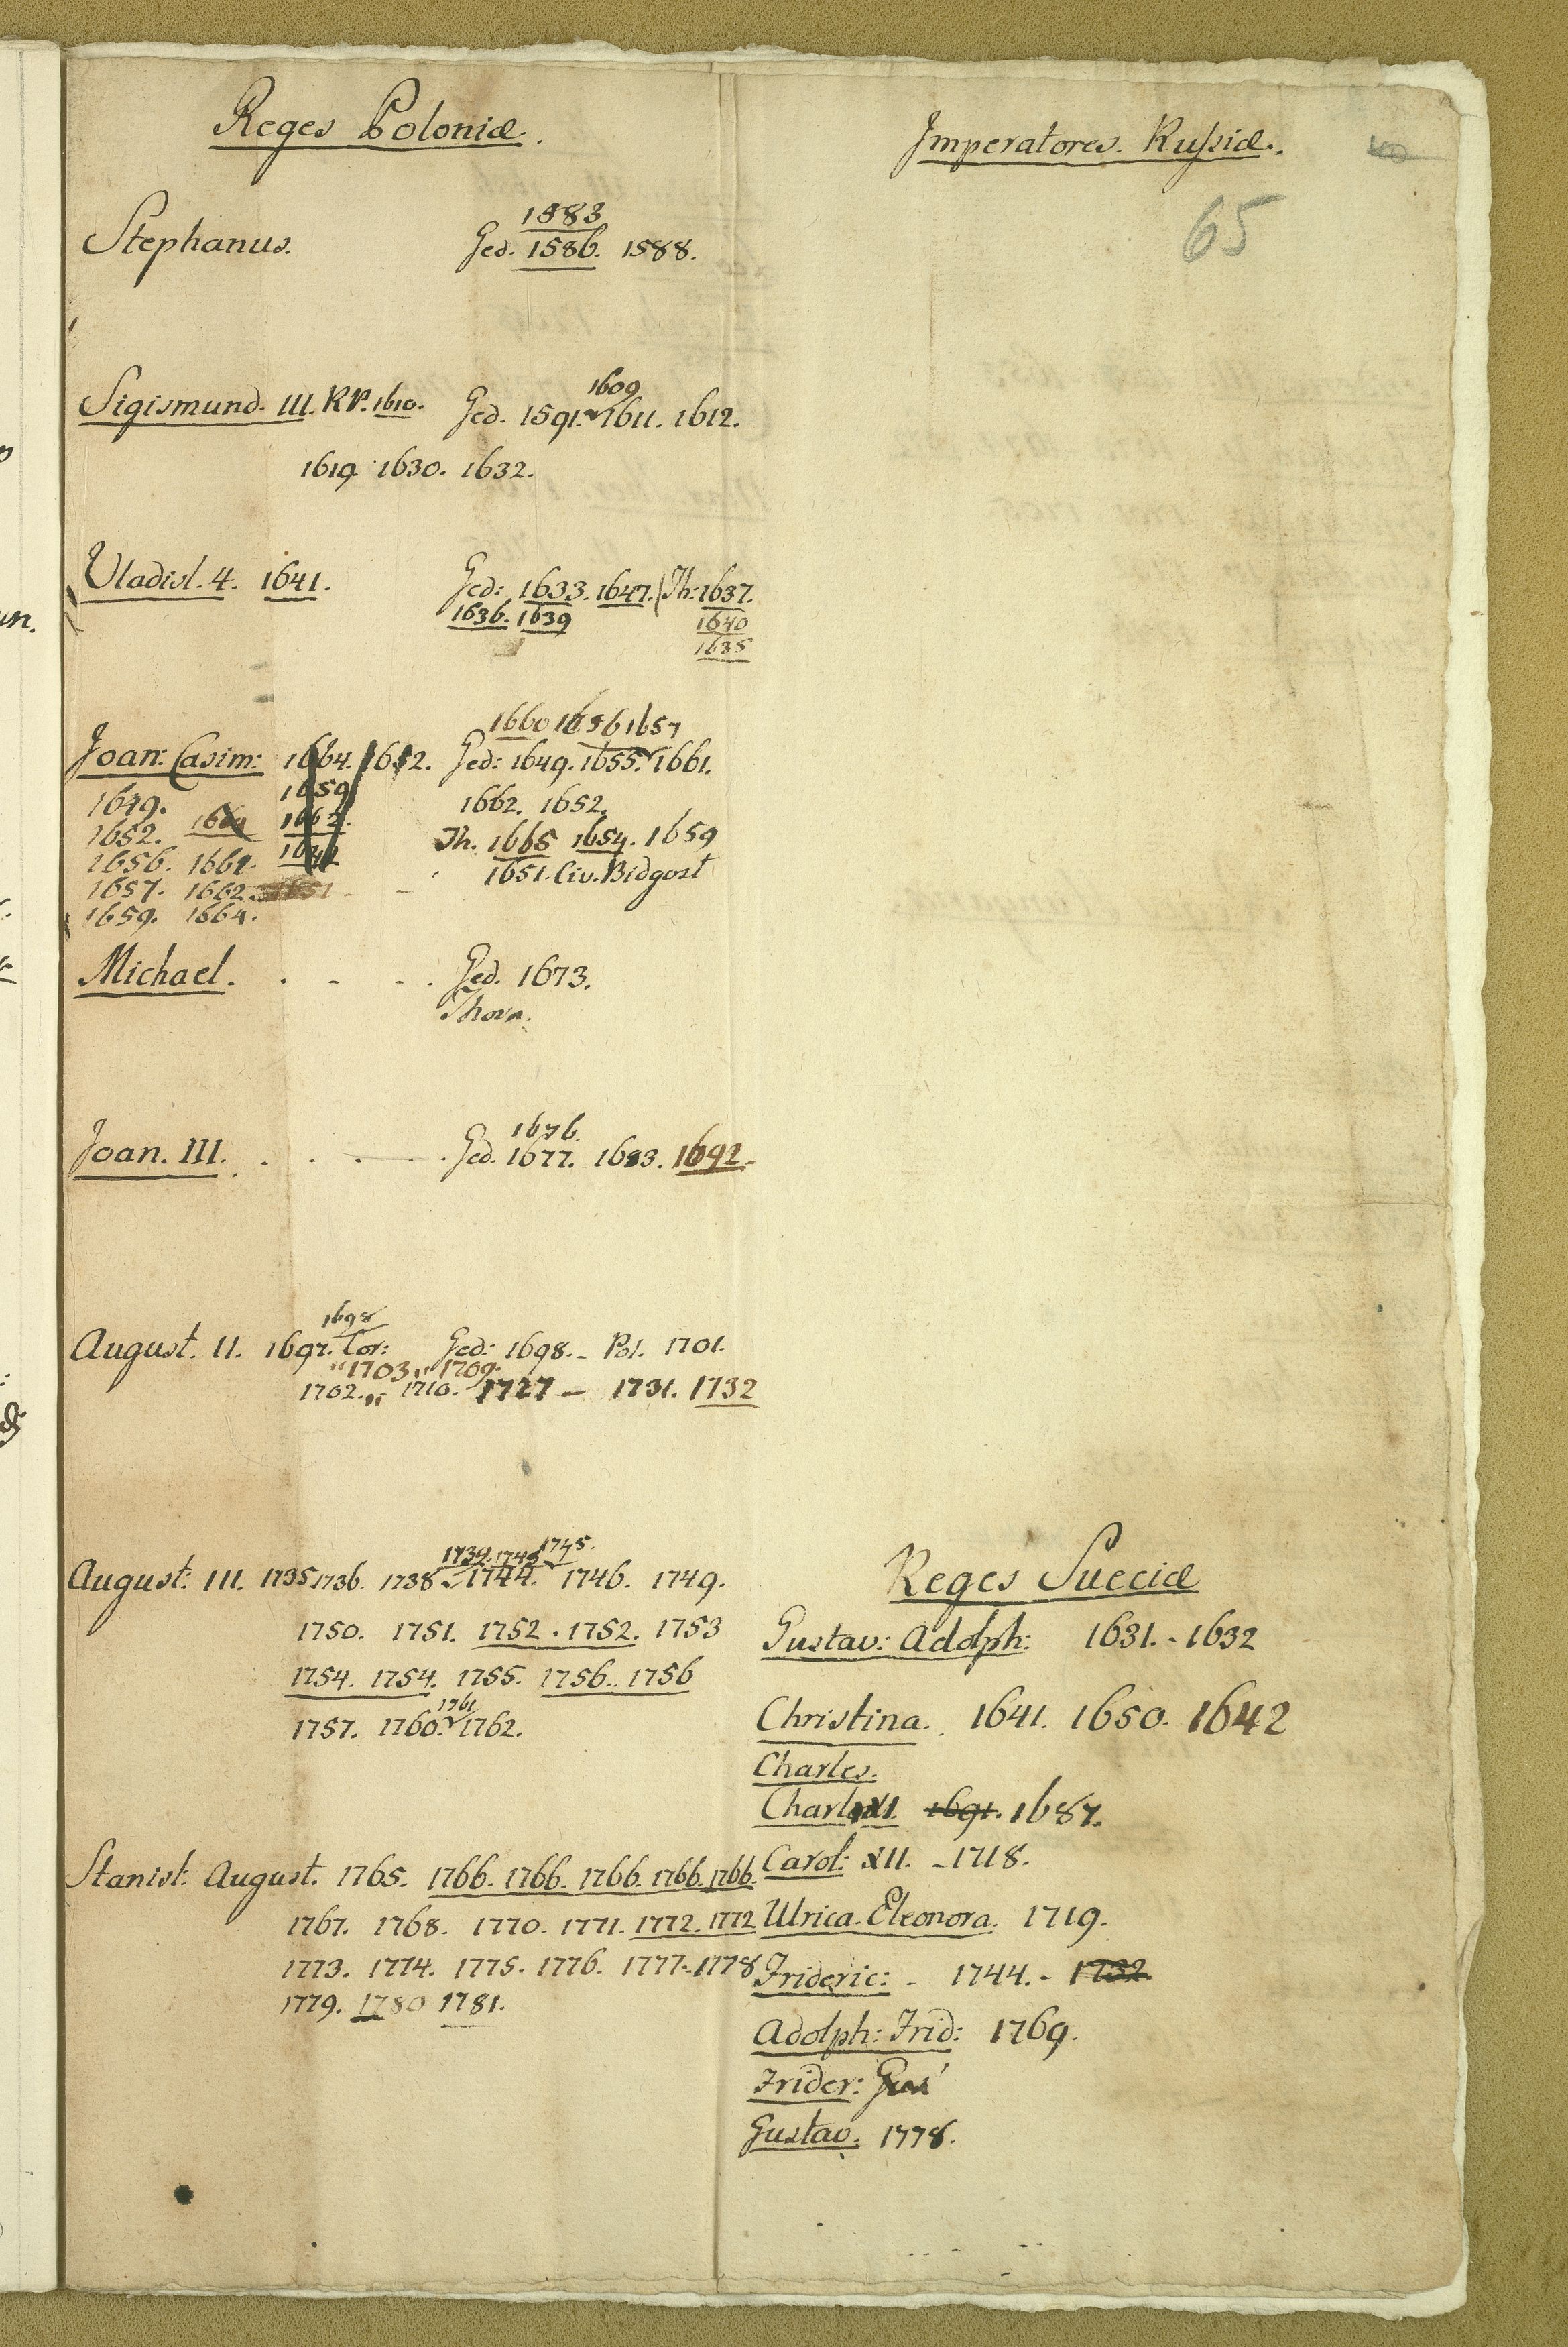 Reges Poloniæ.
Stephanus.
1583
Ged. 1586. 1588.
Sigismund. III. RP. 1610.
1609
Ged. 1591. 1611. 1612.
1619 1630. 1632.
Vladisl. 4. 1641.
Ged: 1633. 1647. (Th: 1637.
1636. 1639 1640
1635
1660 1656 1657
Joan: Casim: 1664. 1652. Ged: 1649. 1655. 1661.
1649. 1659 1662. 1652.
1652. 1662. Th. 1665 1654. 1659
1656. 1661. 1651. Civ. Bidgost
1657. 1662. 1651
1659. 1664.
Michael. Ged. 1673.
Thorn.
1676.
Joan. III. Ged. 1677. 1683. 1692.
1698
August. II. 1697. Cor: Ged: 1698. - Pol. 1701.
"1703" 1709.
1702. „ 1710. 1727 - 1731. 1732
1739. 1743 1745.
August: III. 1735 1736. 1738. 1744. 1746. 1749.
1750. 1751. 1752. 1752. 1753
1754. 1754. 1755. 1756. 1756
1761
1757. 1760. 1762.
Stanisl: August. 1765. 1766. 1766. 1766. 1766. 1766.
1767. 1768. 1770. 1771. 1772. 1772
1773. 1774. 1775. 1776. 1777. 1778
1779. 1780 1781.
Imperatores. Rußiæ.
65
Reges Sueciæ
Gustav: Adolph: 1631. - 1632
Christina. 1641. 1650. 1642
Charles.
Charl XI. 1691. 1687.
Carol: XII. - 1718.
Ulrica. Eleonora. 1719.
Frideric: - 1744. - 1732
Adolph: Frid: 1769.
Frider:
Gustav. 1778.